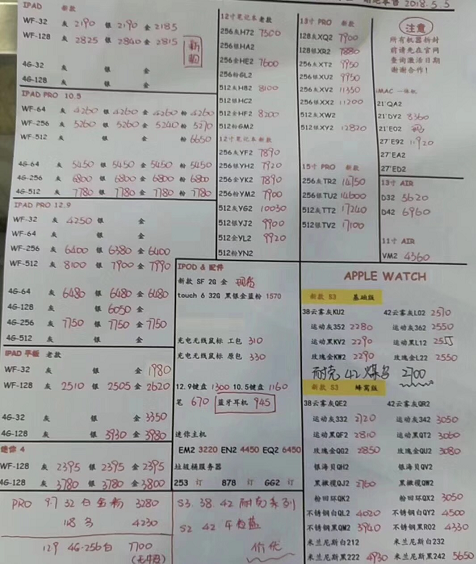 2018.5.5
IPAD 新款
WF-32 灰 2190 银 2190 金 2185
WF-128 灰 2825 银 2840 金 2815
4G-32 灰 银 金
4G-128 灰 银 金
IPAD PRO 10.5
WF-64 灰 4260 银 4260 金 4260 粉 4260
WF-256 灰 5260 银 5260 金 5240 粉 5270
WF-512 灰 银 金 粉 6650
4G-64 灰 5450 银 5450 金 5450 粉 5450
4G-256 灰 6800 银 6800 金 6800 粉 6800
4G-512 灰 7780 银 7780 金 7780 粉 7780
IPAD PRO 12.9
WF-32 灰 4250 银 金
WF-64 灰 银 金
WF-256 灰 6400 银 6380 金 6400
WF-512 灰 8100 银 7900 金 7990
4G-64 灰 6480 银 6480 金 6480
4G-128 灰 银 6050 金
4G-256 灰 7750 银 7750 金 7750
4G-512 灰 银 金
IPAD 平板 老款
WF-32 灰 银 金 1980
WF-128 灰 2510 银 2505 金 2620
4G-32 灰 银 金 3350
4G-128 灰 银 3930 金 3980
迷你 4
WF-128 灰 2395 银 2395 金 2395
4G-128 灰 3780 银 3780 金 3800
PRO 9.7 32 白金粉 3280
4230
12.9 4G-256白 7700
12寸笔记本 老款
256灰H72 7500
256银HA2
256金HE2 7600
256粉GL2
512灰H82 8100
512银HC2
512金HF2 8200
512粉GM2
12寸笔记本 新款
256灰YF2 7890
256银YH2 7920
256金YK2 7890
256粉YM2 7900
512灰YG2 10030
512银YJ2 9900
512金YL2 9920
512粉YN2
13寸 PRO 新款
128灰XQ2 7900
128银XR2 7880
256灰XT2 9950
256银XU2 9950
256灰XV2 11350
256银XX2 11200
512灰XW2
512银XY2 12820
15寸 PRO 新款
256灰TR2 14750
256银TU2 14600
512灰TT2 17240
512银TV2 17100
注意
所有机器拆封
前请先在官网
查询激活日期
谢谢合作！
iMAC 一体机
21'QA2
21'DY2 8360
21'E02
27'E92 11920
27'EA2
27'ED2
13寸 AIR
D32 5620
D42 6960
11寸 AIR
VM2 4560
IPOD & 配件
新款 SF 2G 金
touch 6 32G 黑银金蓝粉 1570
充电无线鼠标 工包 310
充电无线鼠标 原包 330
12.9键盘 1300 10.5键盘 1160
笔 670 蓝牙耳机 945
迷你主机
EM2 3220 EN2 4450 EQ2 6450
垃圾桶服务器
253 订 878 订 GG2 订
S3. 38 42 耐克系列
S2 42
APPLE WATCH
新款 S3 基础版
38云雾灰KU2 42云雾灰L02 2570
运动灰352 2280 运动灰362 2550
运动黑KV2 2290 运动黑L12 2555
玫瑰金KW2 2290 玫瑰金L22 2550
2700
新款 S3 蜂窝版
38云雾灰QE2 42云雾灰QR2
运动灰332 2720 运动灰342 3050
运动黑QF2 2810 运动黑QT2 3060
玫瑰金QG2 2850 玫瑰金QU2 3080
银海贝QH2 银海贝QV2
黑橄榄QJ2 2760 黑橄榄QW2
粉回环QK2 粉回环QX2 3050
不锈钢白QL2 4020 不锈钢QY2 4500
不锈钢黑QM2 3940 不锈钢黑R02 4330
米兰尼斯白212 米兰尼斯白232
米兰尼斯黑222 4930 米兰尼斯黑242 5650